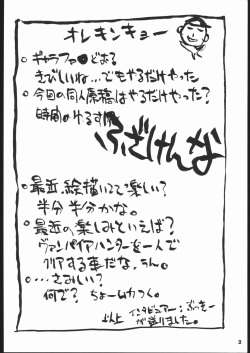 オレキンキョー
○ギャラファ●どおる
きびしいね…でもやるだけやった
○今回の同人原稿はやるだけやった?
時間。ゆるす
ふざけんな
○最近、絵描いてて楽しい?
半分半分かな。
○最近の楽しみといえば?
ヴァンパイアハンターを一人で
クリアする事だな、うん。
○…さみしい?
何で? ちょームカつく。
以上 インタビュアー:ぶっきー
が送りました。
2